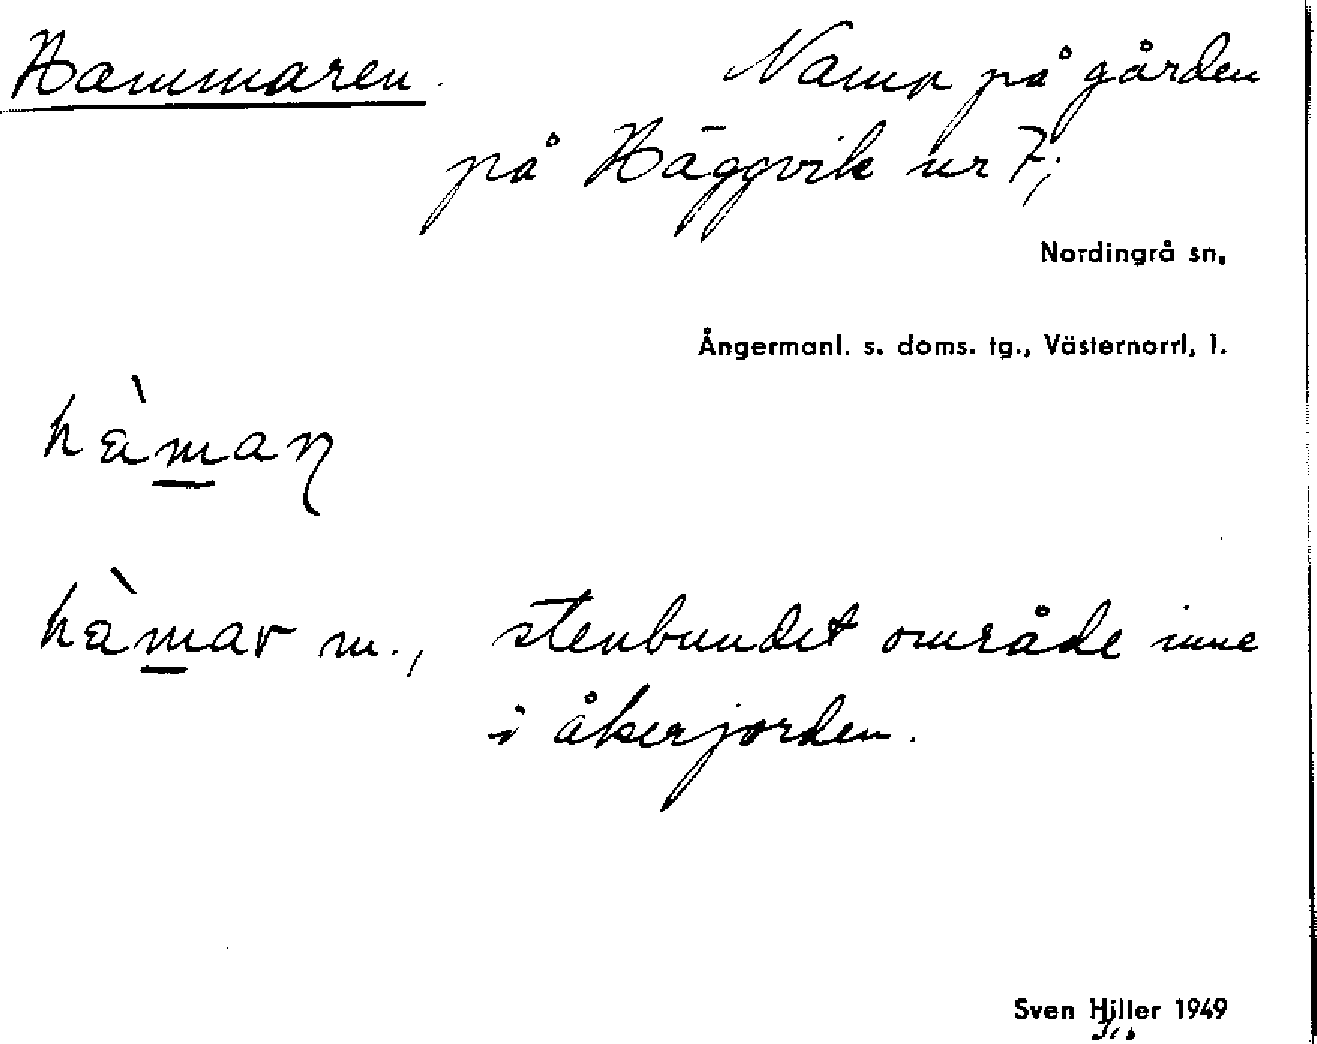 Hammaren. Namn på gården
på Häggvik nr 7;
Nordingrå sn,
Ångermanl. s. doms. tg., Västernorrl, l.
hàmaɳ
hàmar m., stenbundet område inne
i åkerjorden.
Sven Hiller 1949